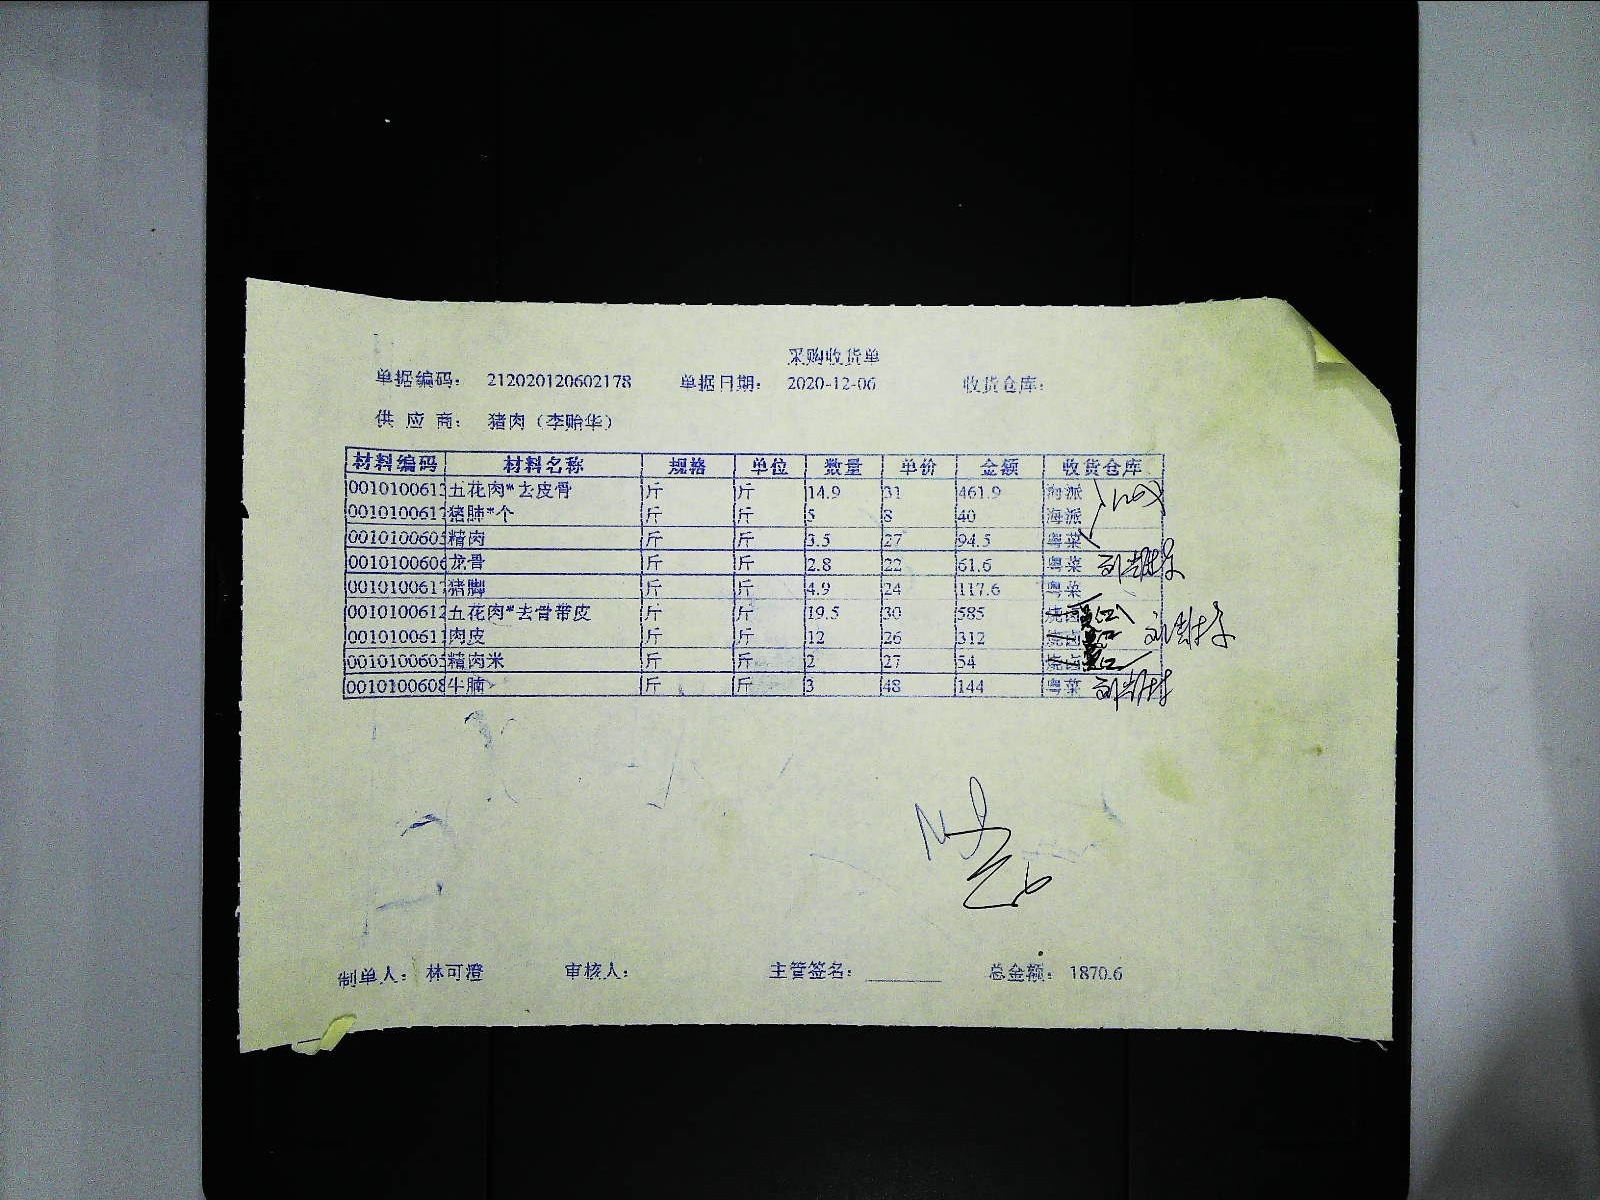 采购收货单
单据编码： 212020120602178 单据日期： 2020-12-06 收货仓库：
供 应 商： 猪肉（李贻华）
材料编码 材料名称 规格 单位 数量 单价 金额 收货仓库
001010061 五花肉*去皮骨 斤 斤 14.9 31 461.9 海派
001010061 猪肺*个 斤 斤 5 8 40 海派
001010060 精肉 斤 斤 3.5 27 94.5 粤菜
0010100606 龙骨 斤 斤 2.8 22 61.6 粤菜
001010061 猪脚 斤 斤 4.9 24 117.6 粤菜
0010100612 五花肉*去骨带皮 斤 斤 19.5 30 585 烧卤
001010061 肉皮 斤 斤 12 26 312 烧卤
001010060 精肉米 斤 斤 2 27 54 烧卤
0010100608 牛腩 斤 斤 3 48 144 粤菜
制单人： 林可澄 审核人： 主管签名： 总金额： 1870.6